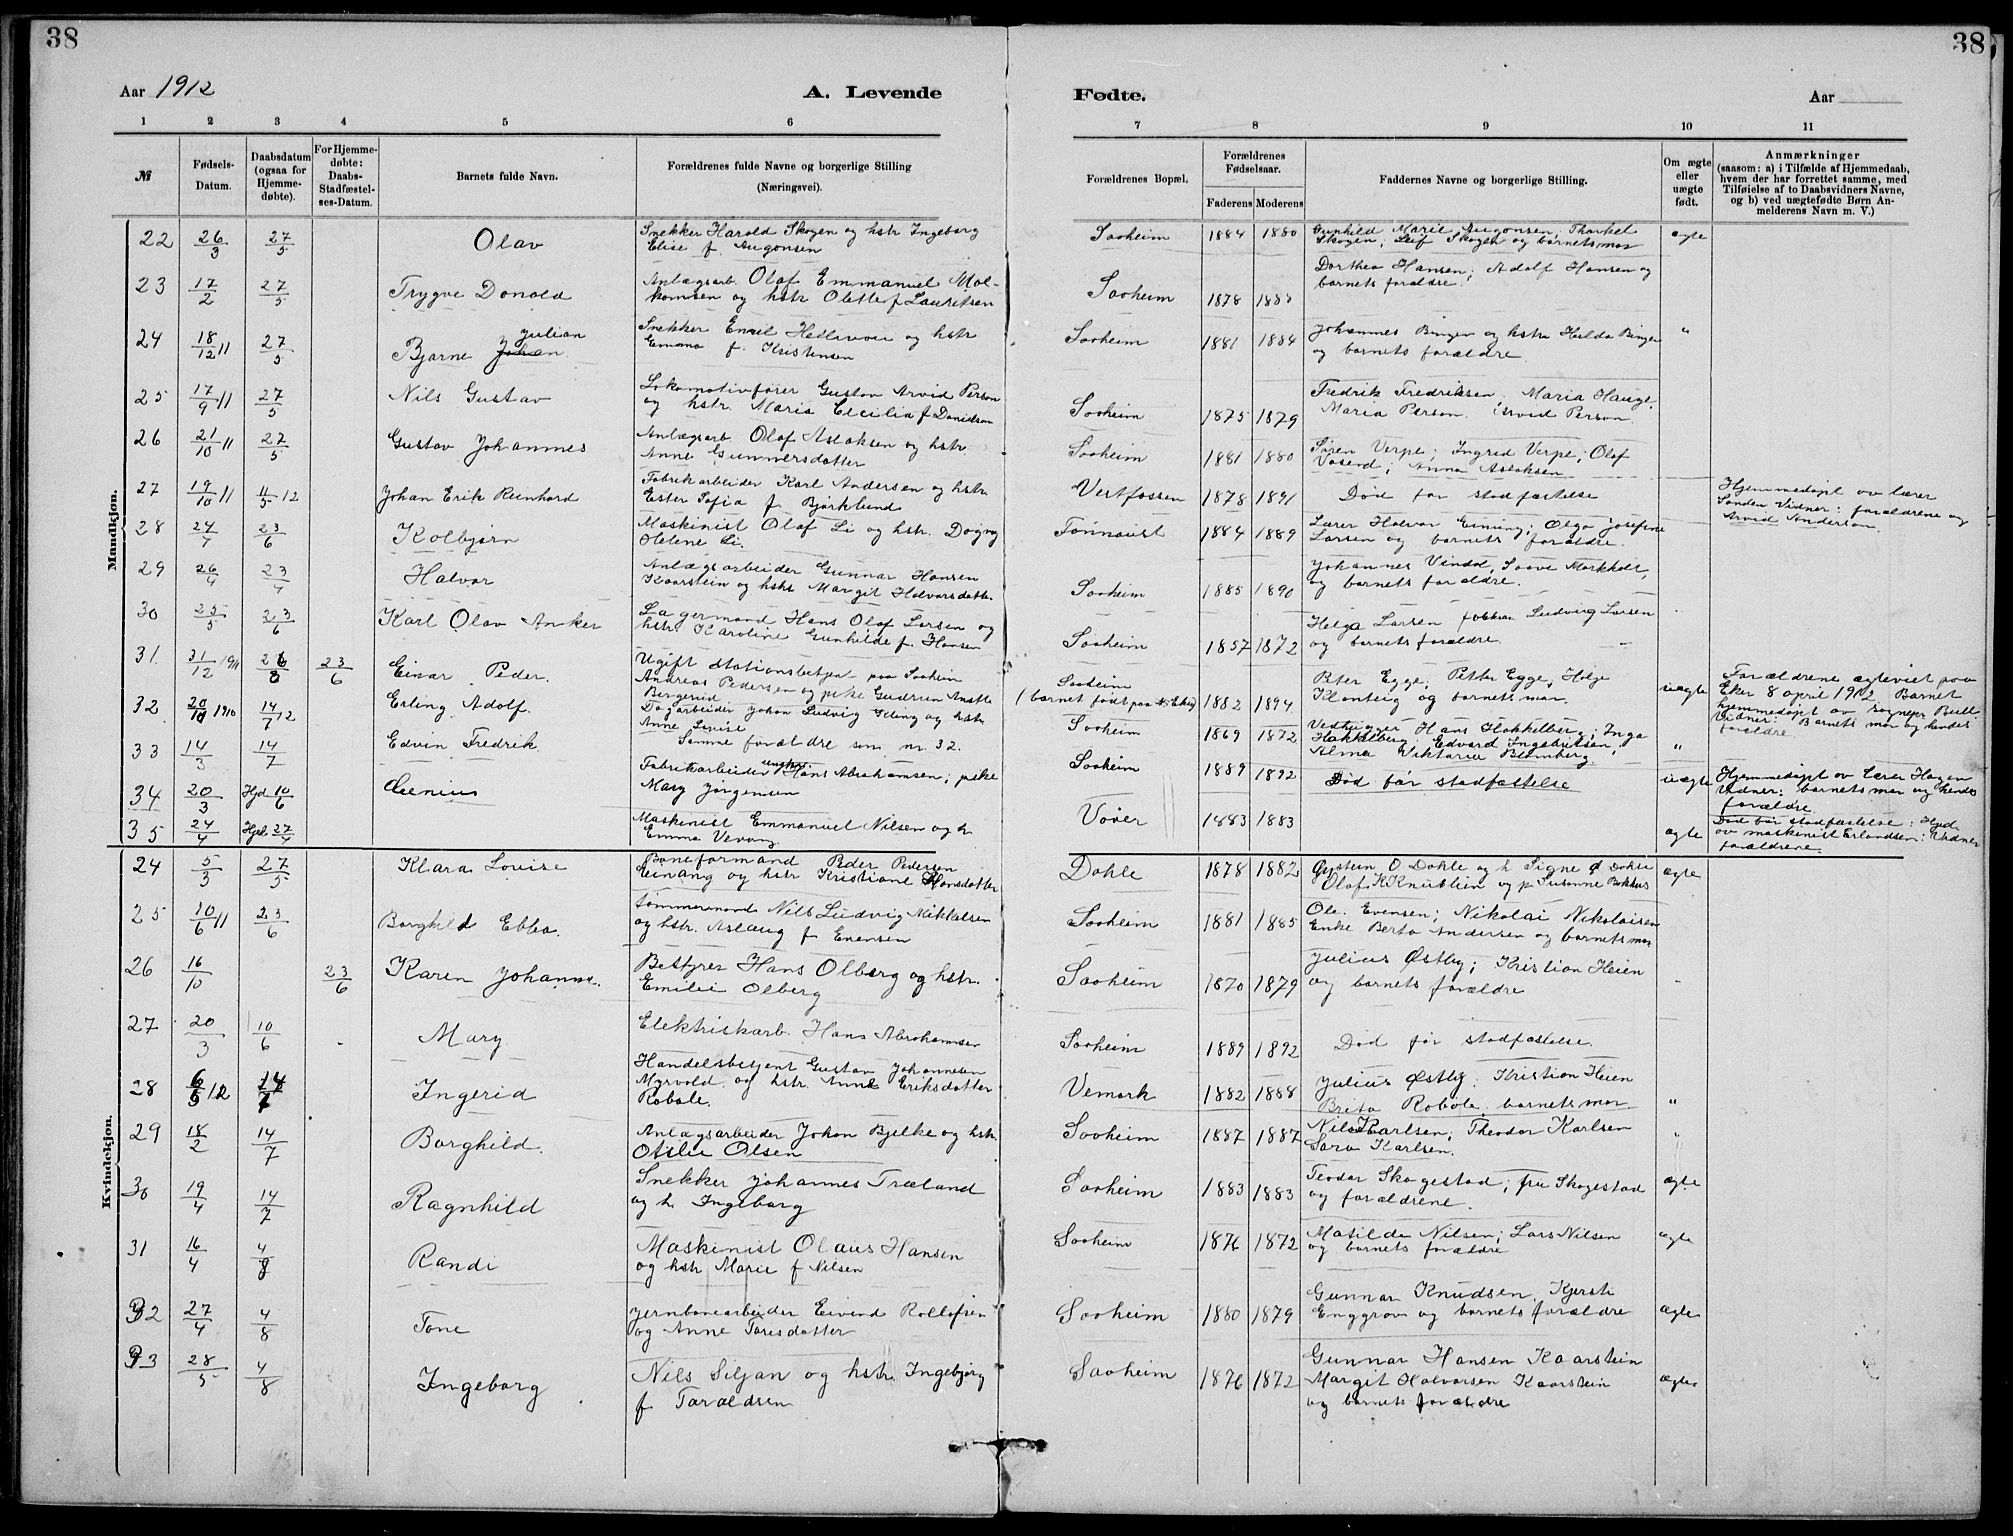 38
38
Aar 1912
A. Levende
Fødte.
Aar
1 2 3 4 5 6 7 8 9 10 11
№
Fødsels-Datum.
Daabsdatum (ogsaa for Hjemmedøbte).
For Hjemmedøbte: Daabs-Stadfæstelses-Datum.
Barnets fulde Navn.
Forældrenes fulde Navne og borgerlige Stilling
(Næringsvei).
Forældrenes Bopæl.
Forældrenes Fødselsaar.
Faderens Moderens
Faddernes Navne og borgerlige Stilling.
Om ægte eller uægte født.
Anmærkninger
(saasom: a) i Tilfælde af Hjemmedaab,
hvem der har forrettet samme, med
Tilføielse af to Daabsvidners Navne,
og b) ved uægtefødte Børn An-
melderens Navn m. V.)
Mandkjøn.
22 26/3 27/5 Olav Snekker Harold Skogen og hstr Ingeborg
Elise f. Saaheim 1884 1880 Gunhild Marie Thorkel
Skogen; Leif Skogen og barnets mor ægte
23 17/2 27/5 Trygve Donald Anlægsarb. Olaf Emmanuel Mol-
komsen og hstr Olette f Lauritsen Saaheim 1878 Dorthea Hansen; Adolf Hansen og
barnets forældre.
24 18/12 11 27/5 Bjarne Julian Snekker Emil og hstr
Emma f. Kristensen Saaheim 1881 1884 Johannes Binger og hstr Hulda Binger
og barnets forældre "
25 17/9 11 27/5 Nils Gustav Lokomotivfører Gustav Arvid Person
og hstr. Maria Cecilia f Danielson Saaheim 1875 1879 Fredrik Fredriksen, Maria Hauge
Maria Person. Arvid Person
26 21/10 11 27/5 Gustav Johannes Anlægsarb. Olaf Aslaksen og hstr.
Anne Gunnersdatter Saaheim 1881 1880 Søren Verpe; Ingrid Verpe; Olaf
Anna Aslaksen
27 19/10 11 11/5 12 Johan Erik Reinhard Fabrikarbeider Karl Andersen og hstr.
Ester Sofia f. Bjørklund Vestfossen 1878 1891 Død før stadfæstelse Hjemmedøpt av lærer
Sanden Vidner: forældrene og
Arvid Anderson
28 24/4 23/6 Kolbjørn Maskinist Olaf Li og hstr. Dagny
Helene Li. 1884 1889 Lærer Halvor Olga Josefine
Larsen og barnets forældre.
29 26/4 23/4 Halvor Anlægsarbeider Gunnar Hansen
Kaarstein og hstr Margit Halvorsdatter Saaheim 1885 1890 Johannes Vindal,
og barnets forældre.
30 25/5 23/6 Karl Olav Anker Lagermand Hans Olaf Larsen og
hstr. Karoline Gunhilde f. Hansen Saaheim 1857 1872 Helga Larsen Ludvig Larsen
og barnets forældre.
31. 31/12 1911 23/6 Einar Peder. Ugift stationsbetjent paa Saaheim
Andreas Pedersen og pike Gudrun
Saaheim
(barnet født paa Eker) 1882 1894 Peter Egge, Petter Egge, Helge
og barnets mor. uægte Forældrene ægteviet paa
Eker 8 april 1912 Barnet
hjemmedøpt av sogneprest Bull
Vidner: Barnets mor og hendes
forældre.
32 20/10 1910 14/7 12 Erling Adolf. Dagarbeider Johan Ludvig og hstr
Anne Saaheim 1869 1872 Hans Hakkelberg; Inga
Hakkelberg; Edvard Ingebritsen;
Alma Wiktoria Blomberg. "
33 14/3 14/7 Edvin Fredrik Samme forældre som nr. 32.
34 20/3 Hjd 10/6 Fabrikarbeider ungkar Hans Abrahamsen; pike
Mary Jørgensen Saaheim 1889 1892 Død før stadfæstelse uægte Hjemmedøpt av lærer Hagen
Vidner: barnets mor og hendes
forældre
35 24/4 Hjd. 27/4 Maskinist Emmanuel Nilsen og h.
Emma Vøver 1883 1883 ægte Død før stadfæstelse: Hjd.
av maskinist Erlandsen: Vidner
forældrene
Kvindekjøn.
24 5/3 27/5 Klara Louise Baneformand Peder Pedersen
Einang og hstr Kristiane Hansdatter Dahle 1878 1882 Øystein O Dahle og h Signe Ø Dahle
Olaf og p Susanne ægte
25 10/6 11 23/6 Borghild Ebba. Tømmermand Nils Ludvig Mikkelsen
og hstr. Aslaug f Evensen Saaheim 1881 1885 Ole Evensen; Nikolai Nikolaisen
Enke Berta Andersen og barnets mor
26 16/10 23/6 Karen Johanne. Bestyrer Hans Olberg og hstr.
Emilie Olberg Saaheim 1870 1879 Julius Østby; Kristian Heien
og barnets forældre
27 20/3 10/6 Mary Elektriskarb. Hans Abrahamsen Saaheim 1889 1892 Død før stadfæstelse.
28 6/5 12 14/7 Ingerid Handelsbetjent Gustav Johannesen
Myrvold og hstr. Anne Eriksdatter
Robøle. Vemork 1882 1888 Julius Østby. Kristian Heien
Brita Robøle, barnets mor "
29 18/2 14/7 Borghild. Anlægsarbeider Johan Bjelke og hstr.
Otilie Olsen Saaheim 1887 1887 Nils Karlsen; Theodor Karlsen
Sara Karlsen. "
30 19/4 14/7 Ragnhild Snekker Johannes Træland
og h. Ingeborg Saaheim 1883 1883 Teodor Skogestad; fru Skogestad
og forældrene. ægte
31 16/4 4/8 Randi Maskinist Olaus Hansen
og hstr Marie f Nilsen Saaheim 1876 1872 Matilde Nilsen; Lars Nilsen
og barnets forældre ægte
32 27/4 4/8 Tone Jernbanearbeider Eivind Rollofsen
og Anne Toresdatter Saaheim 1880 1879 Gunnar Knudsen, Kjersti
Enggrav og barnets forældre ægte
33 28/5 4/8 Ingeborg Nils Siljan og hstr. Ingebjørg
f. Taraldsen Saaheim 1876 1872 Gunnar Hansen Kaarstein
Margit Halvorsen Kaarstein
og barnets forældre ægte